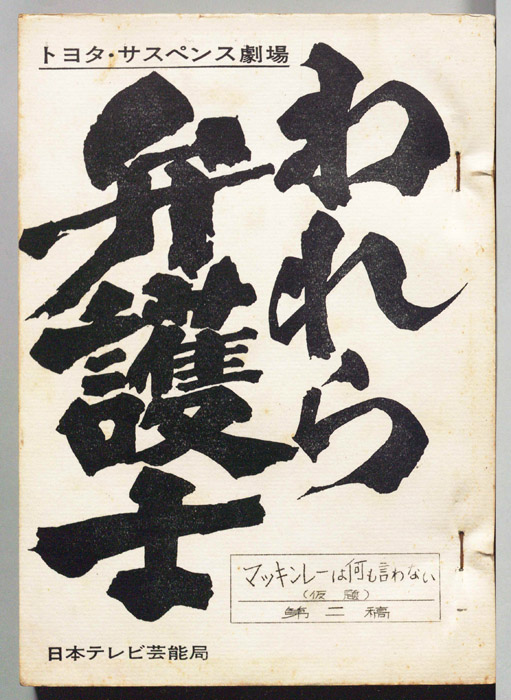 トヨタ・サスペンス劇場
われら
弁護士
マッキンレーは何も言わない
(仮題)
第二稿
日本テレビ芸能局